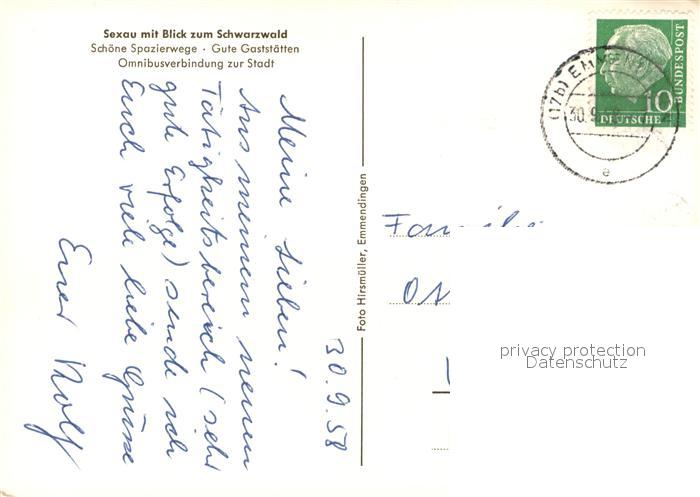 Sexau mit Blick zum Schwarzwald
Schöne Spazierwege · Gute Gaststätten
Omnibusverbindung zur Stadt
30.9.58
Meine Lieben!
Aus meinem neuen
Tätigkeitsbereich (sehr
gute Erfolge) sende ich
Euch viele liebe Grüsse
Euer Rolf
Foto Hirsmüller, Emmendingen
DEUTSCHE
BUNDESPOST
10
(17b) EMMEN
30.9
e
privacy protection
Datenschutz